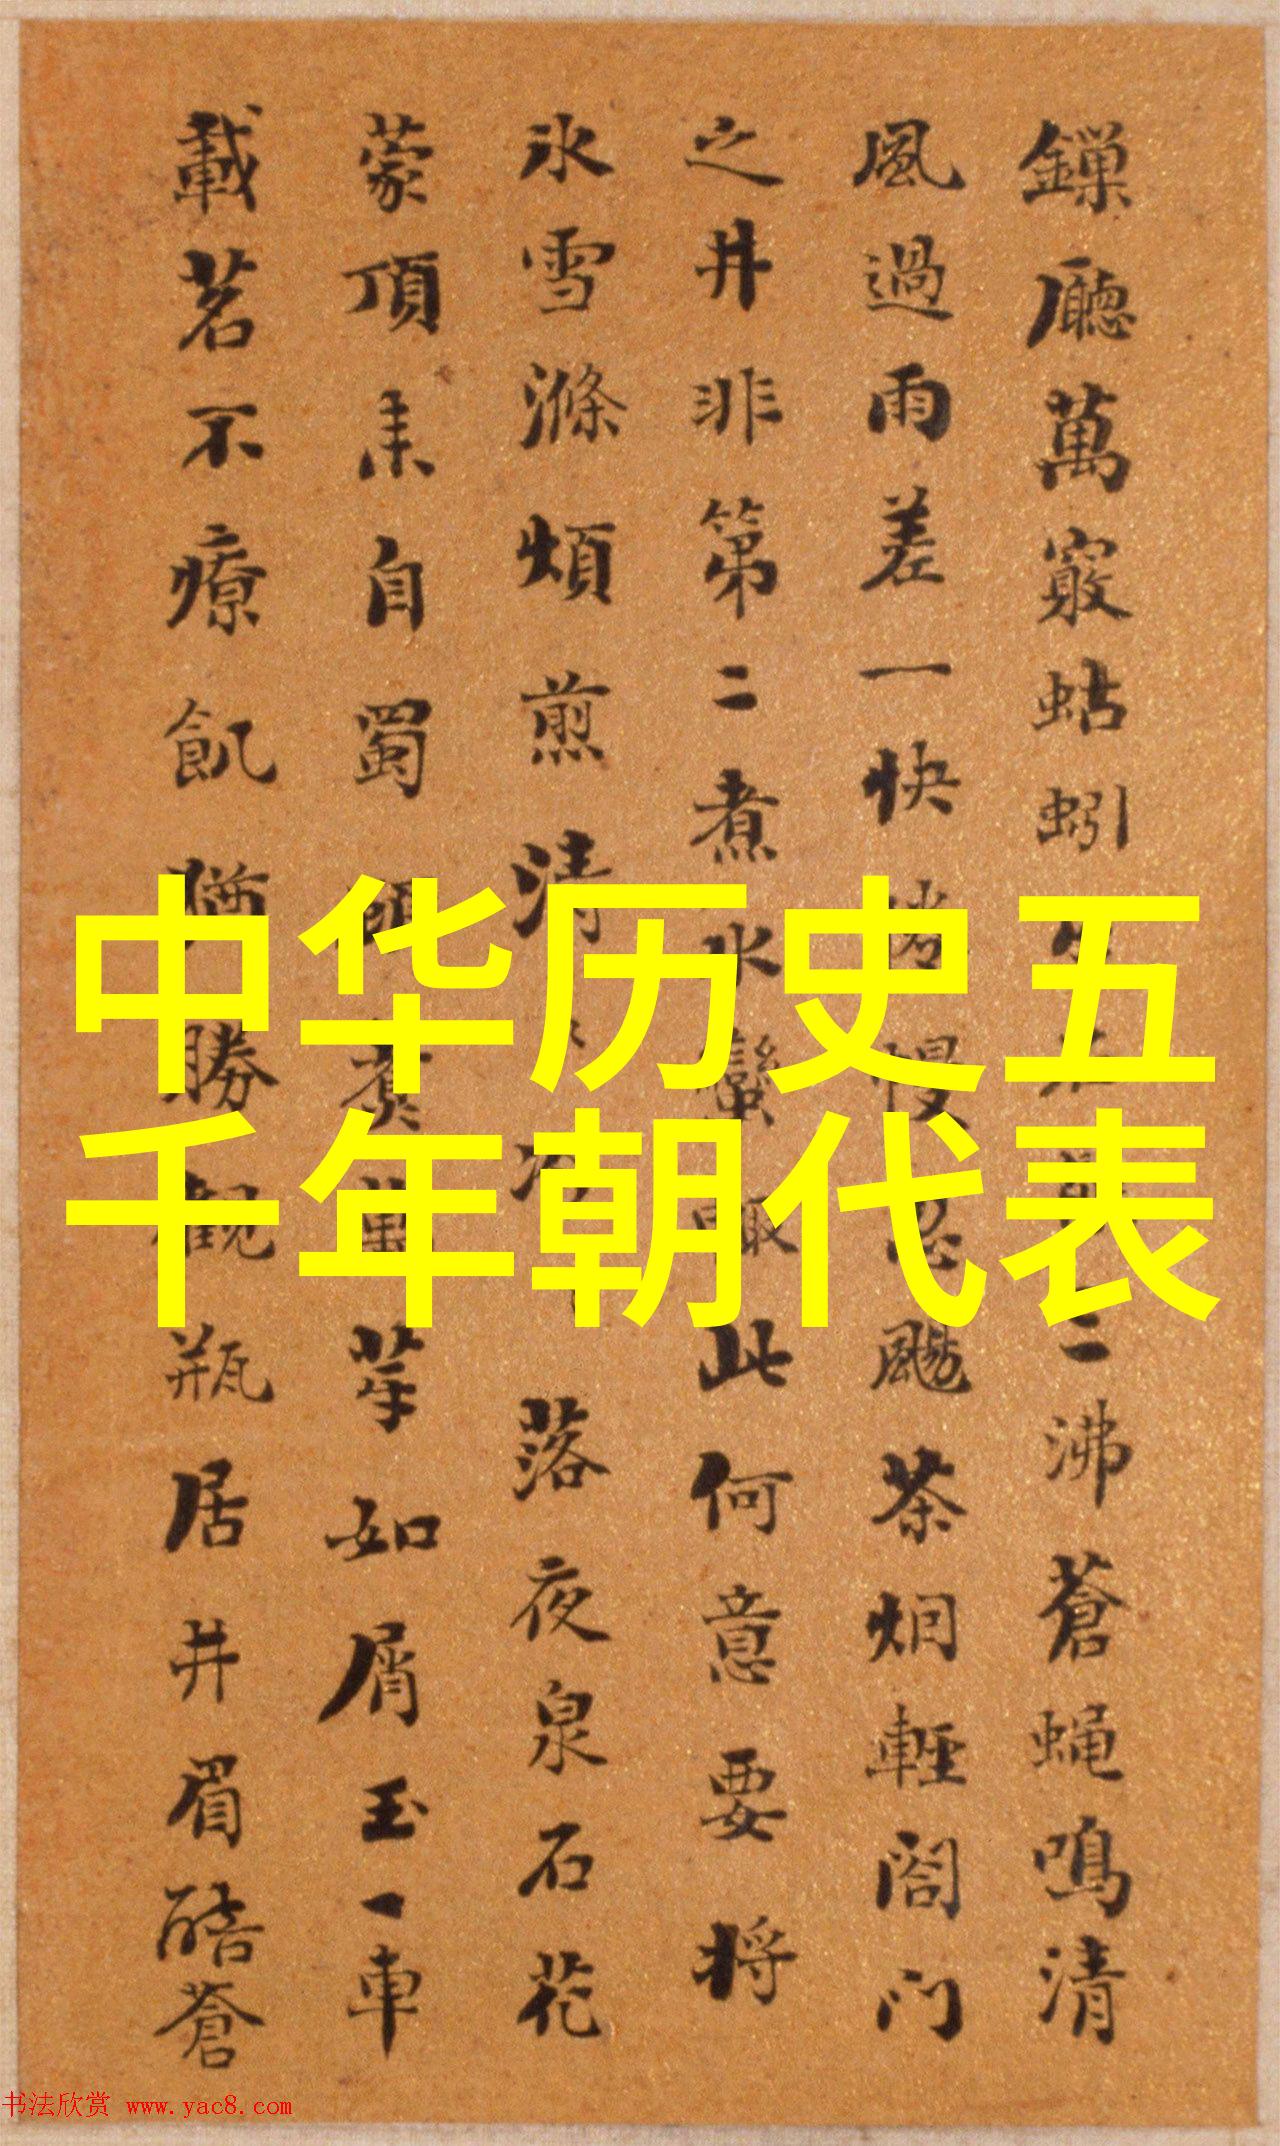 中华历史五
千年朝代表
廳萬竅蛄蚓二沸蒼蝇鳴清
風過雨差一快慢忽颺茶烟輕閤門
之井非第二煮水蠻此何意要將
氷雪滌煩煎清落夜泉石花
蒙頂耒自蜀芽如屑玉一車
載茗不療飢猶勝觀瓶居井眉酷蒼
书法欣赏 www.yac8.com